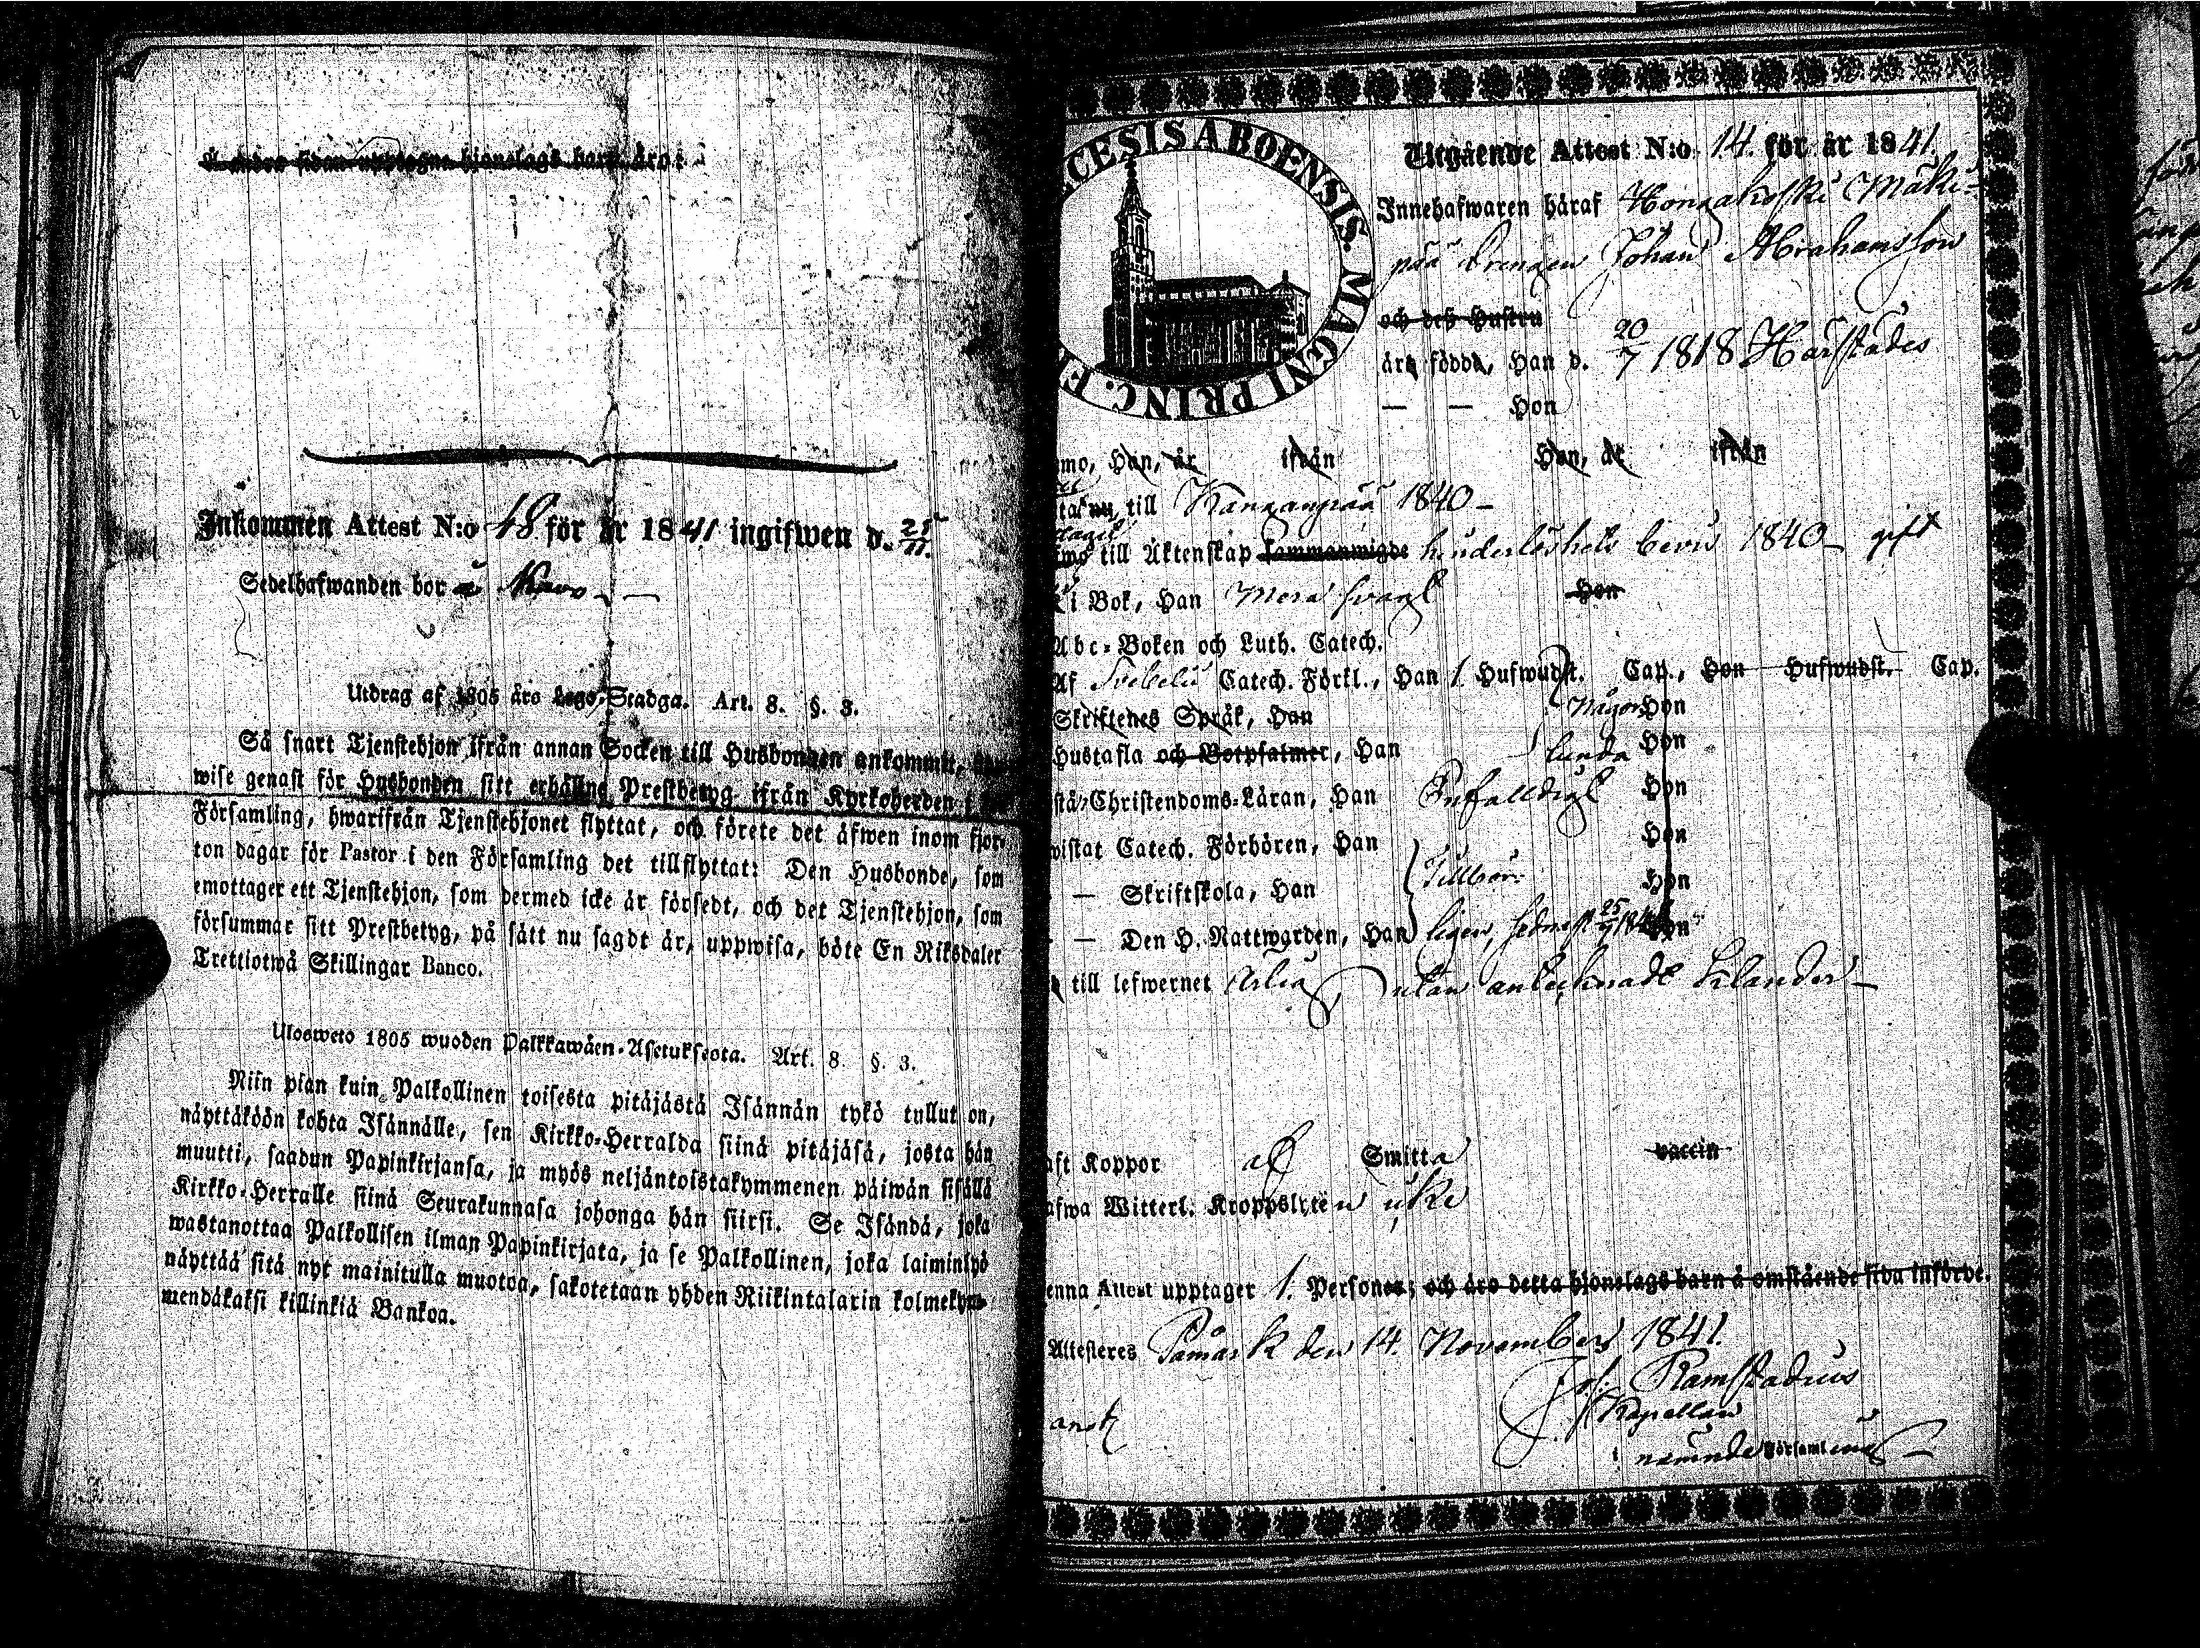 Å andra sidan upptagne hjonelags barn äro:
Inkommen Attest N:o 48 för år 1841 ingifwen d. 25/11.
Sedelhafwanden bor å
Utdrag af 1805 års Lego-Stadga. Art. 8. §. 3.
Så snart Tjenstehjon ifrån annan Socken till Husbonden ankommit,
wise genast för Husbonden sitt erhållne Prestbetyg ifrån Kyrkoherden i
Församling, hwarifrån Tjenstehjonet flyttat, och förete det äfwen inom fjor-
ton dagar för Pastor i den Församling det tillflyttat: Den Husbonde, som
emottager ett Tjenstehjon, som dermed icke är försedt, och det Tjenstehjon, som
försummar sitt Prestbetyg, på sätt nu sagdt är, uppwisa, böte En Riksdaler
Trettiotwå Skillingar Banco.
Ulosweto 1805 wuoden Palkkawäen-Asetuksesta. Art. 8. §. 3.
Niin pian kuin Palkollinen toisesta pitäjästä Isännän tykö tullut on,
näyttäköön kohta Isännälle, sen Kirkko-Herralda siinä pitäjäsä, josta hän
muutti, saadun Papinkirjansa, ja myös neljäntoistakymmenen päiwän sisällä
Kirkko-Herralle siinä Seurakunnasa johonga hän siirsi. Se Isändä, joka
wastanottaa Palkollisen ilman Papinkirjata, ja se Palkollinen, joka laiminlyö
näyttää sitä nyt mainitulla muotoa, sakotetaan yhden Riikintalarin kolmekym-
mendäkaksi killinkiä Bankoa.
CESIS ABOENSIS. MAGNI PRINC. F
Utgående Attest N:o 14. för år 1841.
Innehafwaren häraf Hongakoski Mäki-
pää Drengen Johan Abrahamsson
och dess Hustru
äro födde, Han d. 20/7 1818 Harstades
— — Hon
mo, Han, år ifrån Hon, år ifrån
till Kanganpää 1840 –
till Äktenskap sammanwigde hinderlöshets bevis 1840 – gift
i Bok, Han Mera svagt Hon
Abc-Boken och Luth. Catech.
Af Svebelii Catech. Förkl., Han 1 Hufwudst. Cap., Hon Hufwudst. Cap.
Skriftenes Språk, Han Någor Hon
Hustafla och Botpsalmer, Han lunda Hon
Christendoms-Läran, Han Enfalldigt Hon
wistat Catech. Förhören, Han Hon
— Skriftskola, Han Tillbör- Hon
— Den H. Nattwarden, Han ligen, sednast 25/ Hon
till lefwernet Ärlig, utan antecknadt klander –
aft Koppor af Smitta vaccin
afwa Witterl. Kroppslyten icke
enna Attest upptager 1. Personer; och äro detta hjonelags barn å omstående sida införde.
Attesteres Påmark den 14. November 1841.
Jos. Ramstadius
Kapellan
i nämnde Församling